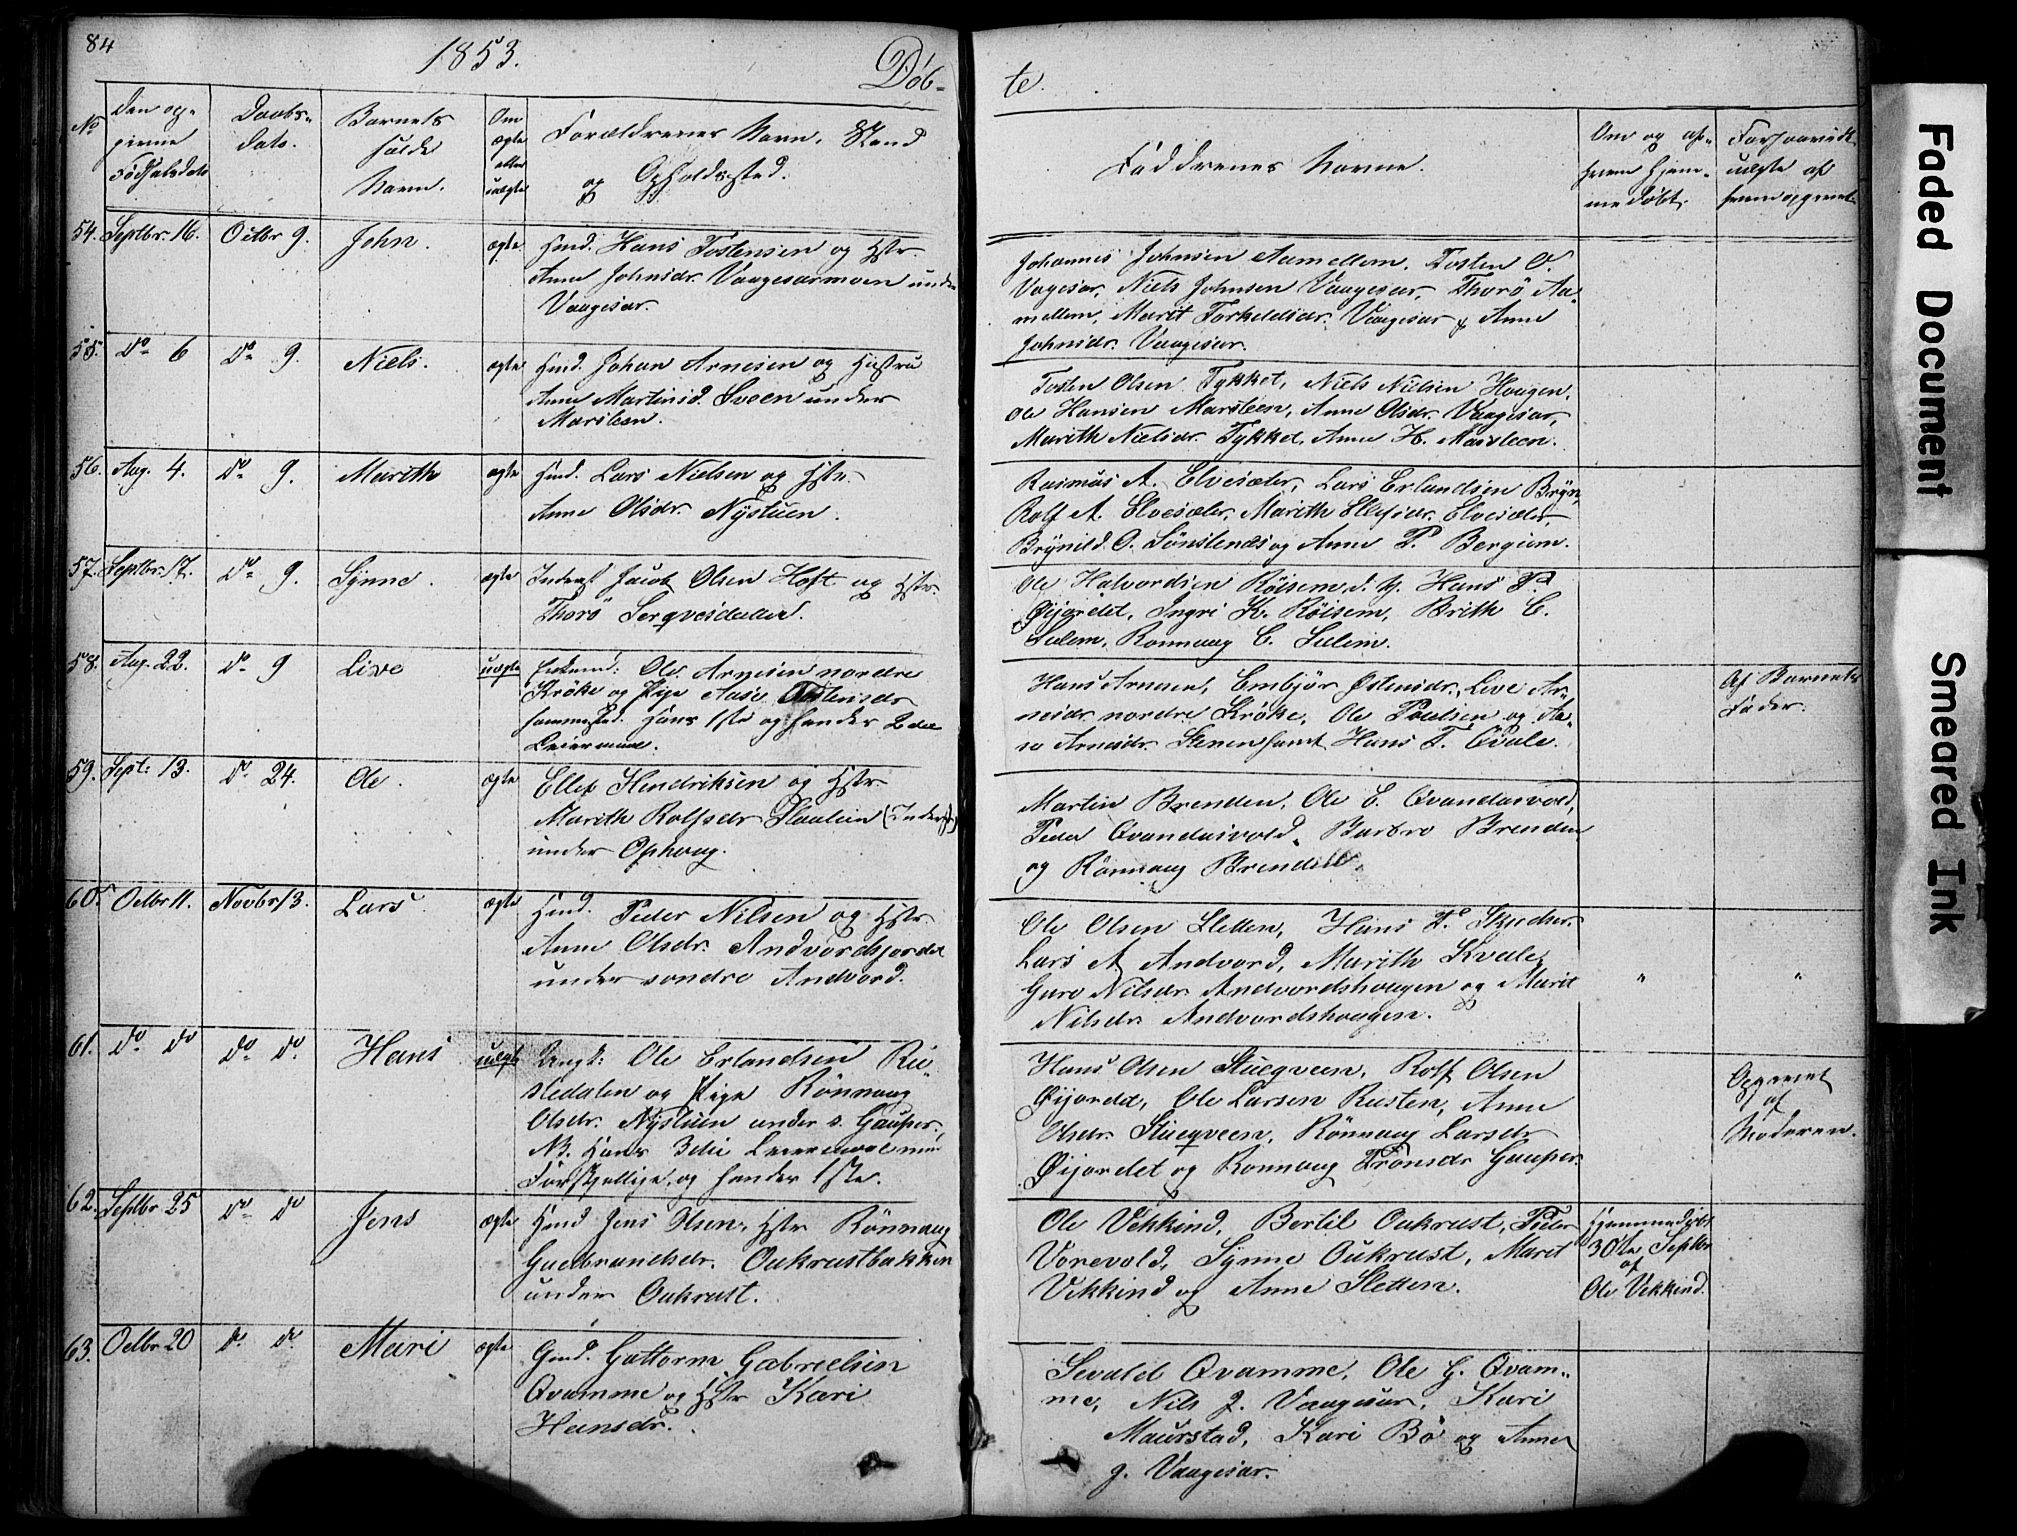 84
1853.
Döb-
te.
No
Den op-
givne
Fødselsdato
Daabs-
dato.
Barnets
fulde
Navn.
Om
ægte
eller
uægte
Forældrenes Navn, Stand
og Opholdssted.
Faddrenes Navne.
Om og af
hvem hjem-
medøbt.
Forsaavidt
uægte af
hvem opgivet
54. Septbr. 16. Octbr 9. John. ægte Hmd. Hans Tostensen og Hstr.
Anne Johnsdr. Vaagesarmoen under
Vaagesar.
Johannes Johnsen Aamellem, Tosten O.
Vagesar, Niels Johnsen Vaagesar, Thorö Aa-
mellem, Marit Torkeldsdr. Vaagesar & Anne
Johnsdr. Vaagesar.
55. Do 6 Do 9. Niels. ægte Hmd. Johan Arnesen og Hustru
Anne Martinsd. Sveen under
Marsteen.
Tosten Olsen Tykket, Niels Nielsen Haugen,
Ole Hansen Marsteen, Anne Olsdr. Vaagesar,
Marith Nielsdr. Tykket, Anne H. Marsteen.
56. Aug. 4. Do 9. Marith ægte Hmd. Lars Nielsen og Hstr.
Anne Olsdr. Nÿstuen.
Rasmus A. Elvesæter, Lars Erlandsen Brÿn
Rolf A. Elvesæter, Marith Ellefsdr. Elvesæter,
Brÿnild O. Sönstenæs og Anne P. Bergium.
57. Septbr. 17. Do 9. Synne. ægte Inderst Jacob Olsen Hoft og Hstr.
Thorö Serqvesdatter.
Ole Halvordsen Röisem d. y. Hans P.
Öijordet, Ingri K. Röisem, Brith C.
Sulem, Ronnaug C. Sulem.
58. Aug. 22. Do 9 Live uægte Enkemd: Ole Arnesen nordre
Kröke og Pige Aase Östensdr
sammested. Hans 1ste og hendes 2det
Leiermaal.
Hans Arnesen, Embjör Östensdr., Live Ar-
nesdr nordre Kröke, Ole Poulsen og Aa-
se Arnesdr. Steven samt Hans T. Qvale.
Af Barnets
Fader.
59. Sept: 13. Do 24. Ole. ægte Ellef Hendriksen og Hstr.
Marith Rolfsdr (Inderst)
under Ophaug.
Martin Brenden, Ole E. Qvandasvold,
Peder Qvandasvold, Barbro Brenden
og Rönnaug Brenden.
60. Octbr 11. Novbr 13. Lars. ægte Hmd. Peder Nilsen og Hstr
Anne Olsdr. Andvordsjordet
under søndre Andvord.
Ole Olsen Sletten, Hans P.
Lars A. Andvord, Marith Kvale,
Guro Nilsdr Andvordshaugen og Marit
Nilsdr Andvordshaugen.
" "
61. Do Do Do Do. Hans uægte Ungk: Ole Erlandsen Ru-
stedalen og Pige Rönnaug
Olsdr. Nystuen under s. Gaupar.
NB. Hans 3die Leiermaal med
Forskjellige, og hendes 1ste.
Hans Olsen Stuegveen, Rolf Olsen
Öijordet, Ole Larsen Rusten, Anne
Olsdr. Stuegveen, Rönnaug Larsdr
Öijordet og Ronnaug Tronsdr Gaupar.
Opgivet
af
Moderen.
62. Septbr 25 Do Do Jens ægte Hmd Jens Olsen, Hstr Rönnaug
Gudbrandsdr. Oukrustbakken
under Oukrust.
Ole Vekkind, Bertil Oukrust, Peder
Vorevold, Synne Oukrust, Marit
Vekkind og Anne Sletten.
Hjemmedöbt
30te Septbr
af
Ole Vekkind.
63. Octbr 20 do do. Mari ægte Gmd. Guttorm Gabrielsen
Qvamme og Hstr Kari
Hansdr.
Sevald Qvamme, Ole G. Qvam-
me, Nils J. Vaagesar, Kari
Maurstad, Kari Bö og Anne
J. Vaagesar.
Faded Document
Smeared Ink